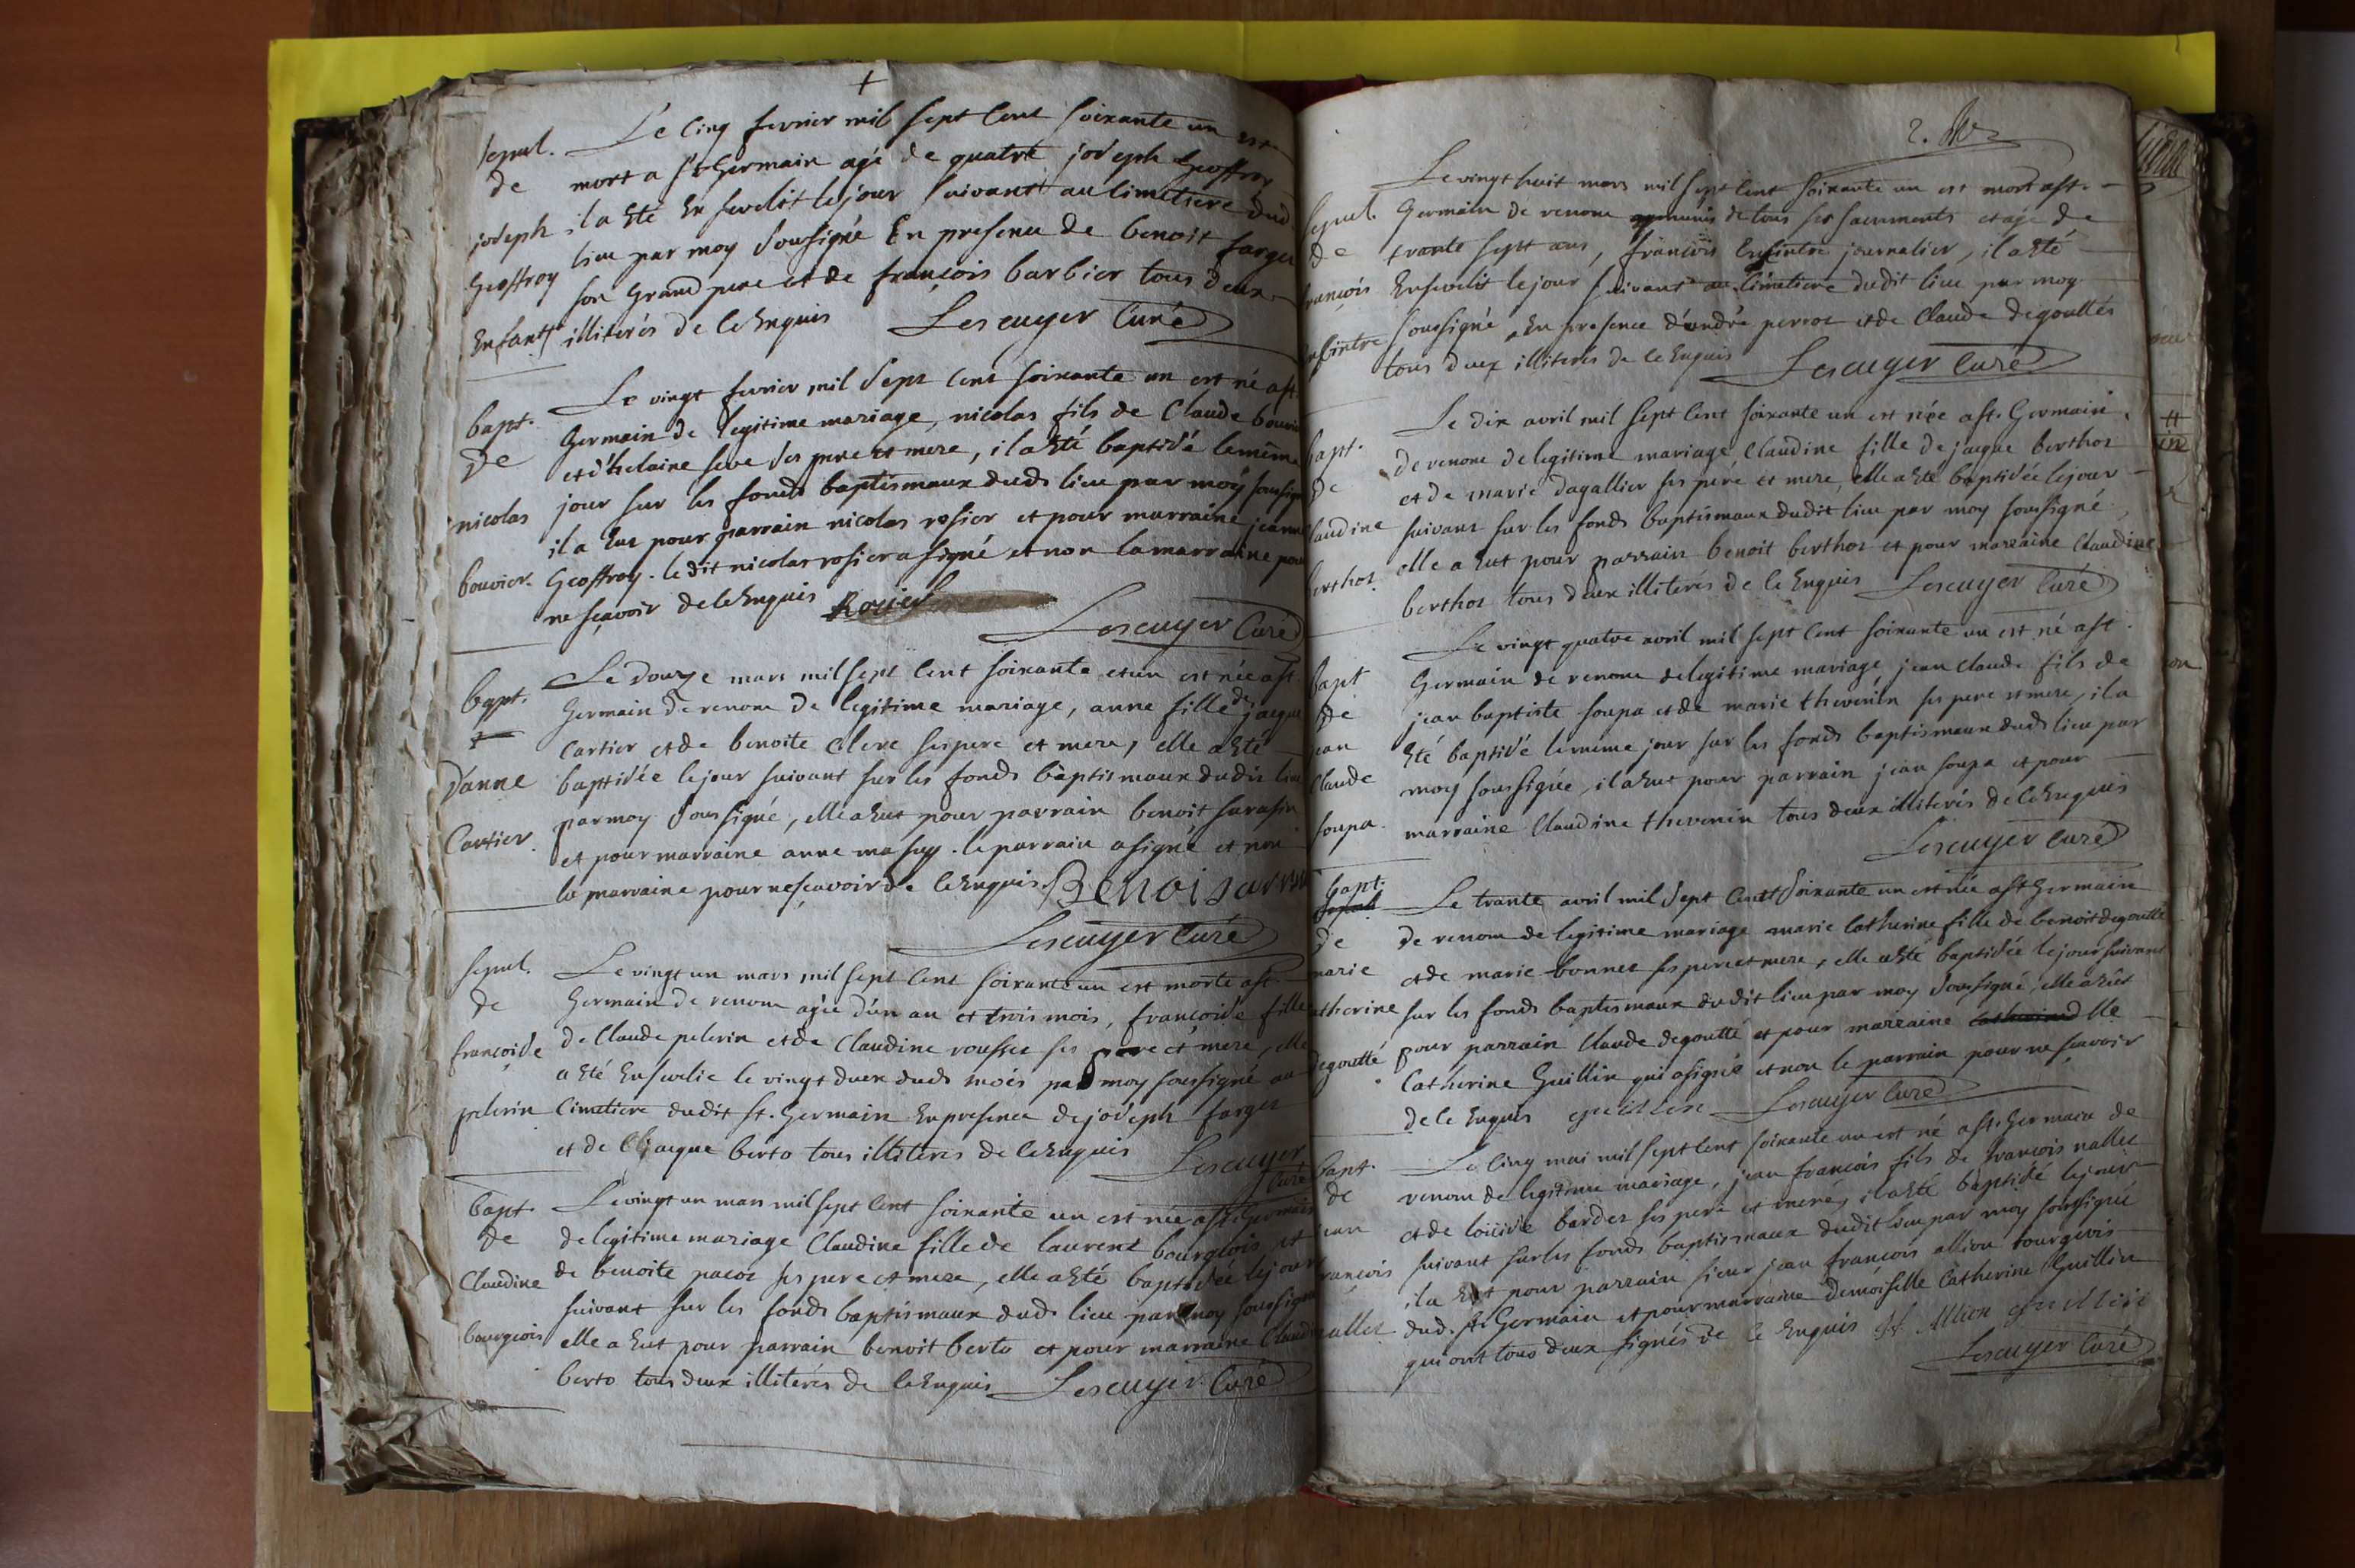 +
sepul.
de
joseph
Geoffroy
Enfant
Le cinq fevrier mil sept cent soixante un est
mort a st Germain agé de quatre joseph Geoffroy
il a Eté Enseveli le jour suivant au cimetiere dud
lieu par moy soussigné En presence de benoit farge
son Grand pere et de françois barbier tous deux
illiterés de ce Enquis Lescuyer Curé
bapt.
de
nicolas
bouvier.
Le vingt fevrier mil sept cent soixante un est né a st.
Germain de legitime mariage, nicolas fils de Claude bouvier
et d'helaine seve ses pere et mere, il a Eté baptisé le même
jour sur les fonds baptismaux dudt lieu par moy soussigné
il a Eut pour parrain nicolas rosier et pour marraine jeanne
Geoffroy. le dit nicolas rosier a signé et non la marraine pour
ne sçavoir de ce Enquis Rosier
Lescuyer Curé
bapt.
d'anne
Cartier.
Le douze mars mil sept cent soixante et un est née a st.
Germain de renom de legitime mariage, anne fille de jacque
Cartier et de benoite Clerc ses pere et mere, elle a Eté
baptisée le jour suivant sur les fonds baptismaux dudit lieu
par moy soussigné, elle a Eut pour parrain benoit sarasin
et pour marraine anne masuy. le parrain a signé et non
la marraine pour ne sçavoir de ce Enquis. Benoi sarasin
Lescuyer Curé
sepul.
de
françoise
pelerin
Le vingt un mars mil sept cent soixante un est morte a st.
Germain de renom agée d'un an et trois mois, françoise fille
de Claude pelerin et de Claudine rousset ses pere et mere, elle
a Eté Ensevelie le vingt deux dudt mois par moy soussigné au
Cimetiere dudit st. Germain En presence de joseph farget
et de jacque berto tous illiterés de ce Enquis Lescuyer
Curé
bapt.
de
Claudine
bourgeois
Le vingt un mars mil sept cent soixante un est née a st. Germain
de legitime mariage Claudine fille de laurent bourgeois et
de benoite pacot ses pere et mere, elle a Eté baptisée le jour
suivant sur les fonds baptismaux dudt lieu par moy soussigné
elle a Eut pour parrain benoit berto et pour marraine Claudine
berto tous deux illiterés de ce Enquis Lescuyer Curé
2.
sepul.
de
françois
Le vingt huit mars mil sept cent soixante un est mort a st.
Germain de renom de tous ses sacrements et agé de
trante sept ans, françois Enfintre journalier, il a Eté
Enseveli le jour suivant au Cimetiere dudit lieu par moy
soussigné, En presence d'andré perrot et de Claude degoutte
tous deux illiterés de ce Enquis Lescuyer Curé
bapt.
de
Claudine
berthot.
Le dix avril mil sept cent soixante un est née a st. Germain
de renom de legitime mariage Claudine fille de jacque berthot
et de marie dagallier ses pere et mere, elle a Eté baptisée le jour
suivant sur les fonds baptismaux dudit lieu par moy soussigné
elle a Eut pour parrain benoit berthot et pour marraine Claudine
berthot tous deux illiterés de ce Enquis Lescuyer Curé
bapt
de
jean
Claude
soupa.
Le vingt quatre avril mil sept cent soixante un est né a st.
Germain de renom de legitime mariage, jean Claude fils de
jean baptiste soupa et de marie thevenin ses pere et mere, il a
Eté baptisé le même jour sur les fonds baptismaux dudt lieu par
moy soussigné, il a Eut pour parrain jean soupa et pour
marraine Claudine thevenin tous deux illiterés de ce Enquis
Lescuyer Curé
bapt.
de
marie
Catherine
degoutte
Le trante avril mil sept cent soixante un est née a st Germain
de renom de legitime mariage marie Catherine fille de benoit degoutte
et de marie bonnet ses pere et mere, elle a Eté baptisée le jour suivant
sur les fonds baptismaux dudit lieu par moy soussigné, elle a Eut
pour parrain Claude degoutte et pour marraine Dlle
Catherine Guillin qui a signé et non le parrain pour ne sçavoir
de ce Enquis guillin Lescuyer Curé
bapt.
de
jean
françois
nallet
Le Cinq mai mil sept cent soixante un est né a st. Germain de
renom de legitime mariage, jean françois fils de françois nallet
et de loüise bardet ses pere et mere, il a Eté baptisé le jour
suivant sur les fonds baptismaux dudit lieu par moy soussigné
il a Eut pour parrain sieur jean françois allion bourgeois
dud. st. Germain et pour marraine demoiselle Catherine Guillin
qui ont tous deux signés de ce Enquis Allion guillin
Lescuyer Curé